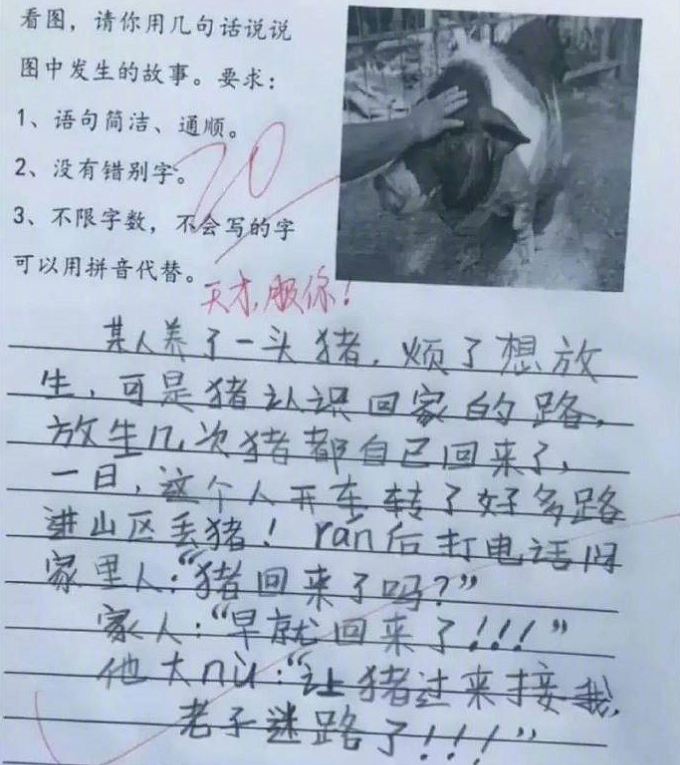 看图，请你用几句话说说
图中发生的故事。要求：
1、语句简洁、通顺。
2、没有错别字。
3、不限字数，不会写的字
可以用拼音代替。
20
天才，服你！
某人养了一头猪，烦了想放
生，可是猪认识回家的路，
放生几次猪都自己回来了，
一日，这个人开车转了好多路
进山区丢猪！rán后打电话问
家里人：“猪回来了吗？”
家人：“早就回来了！！！”
他大nù：“让猪过来接我，
老子迷路了！！！”